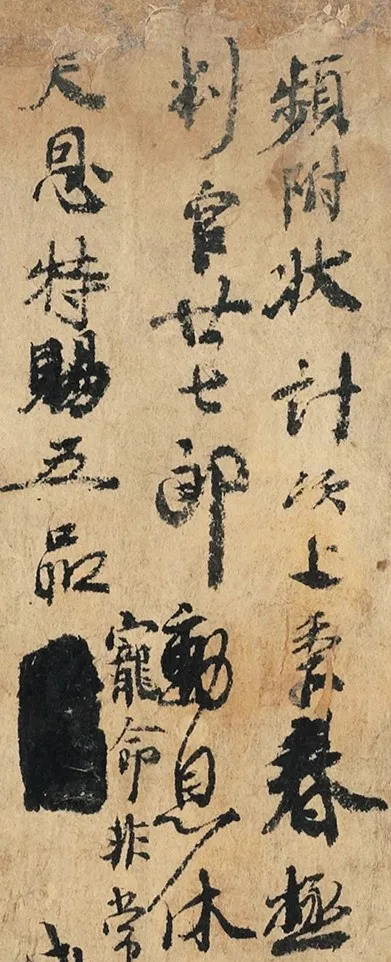 頻附狀計次上春極
判官廿七郎動息休
寵命非常
天恩特賜五品